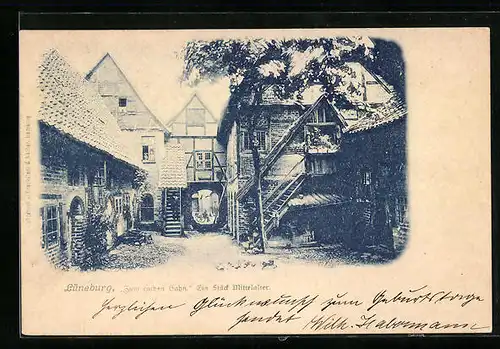 Lüneburg, „Zum roten Hahn.“ Ein Stück Mittelalter.
Herzlichen Glückwunsch zum Geburtstage
sendet Wilh. Habermann